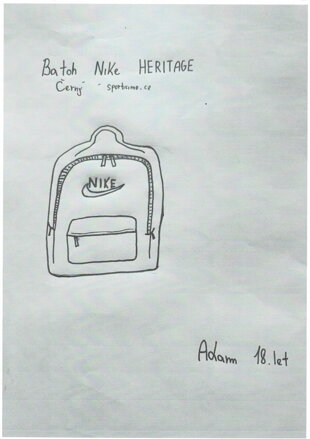 Batoh Nike HERITAGE
Černý - sportisimo.cz
NIKE
Adam 18.let